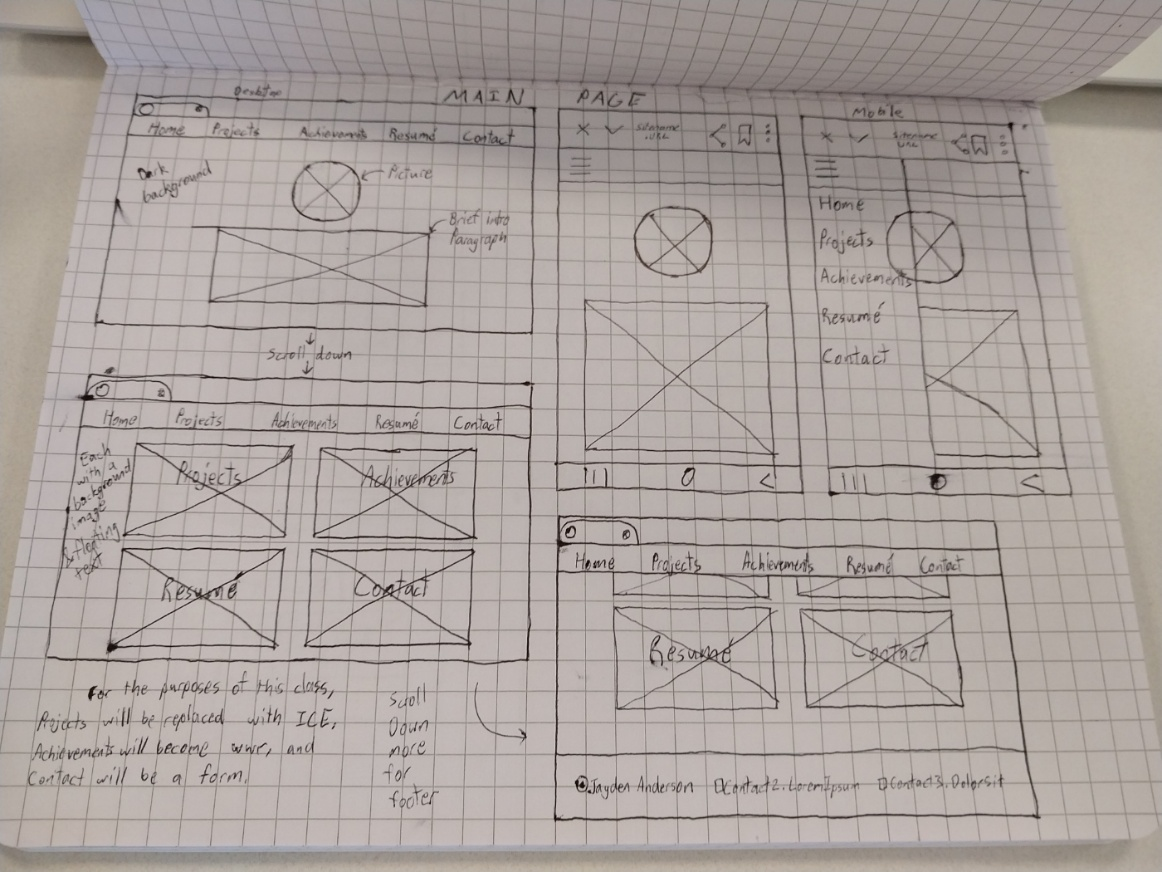 Desktop
MAIN PAGE
Home Projects Achievements Resumé Contact
Dark
background
Picture
Brief intro
Paragraph
Scroll down
Home Projects Achievements Resumé Contact
Each
with a
background
image
& floating
text
Projects
Achievements
Resumé
Contact
For the purposes of this class,
Projects will be replaced with ICE,
Achievements will become wwr, and
Contact will be a form.
Scroll
Down
more
for
footer
Sitename
.URL
Mobile
Sitename
URL
Home
Projects
Achievements
Resumé
Contact
Home Projects Achievements Resumé Contact
Resumé
Contact
Jayden Anderson Contact2.LoremIpsum Contact3.Dolorsit